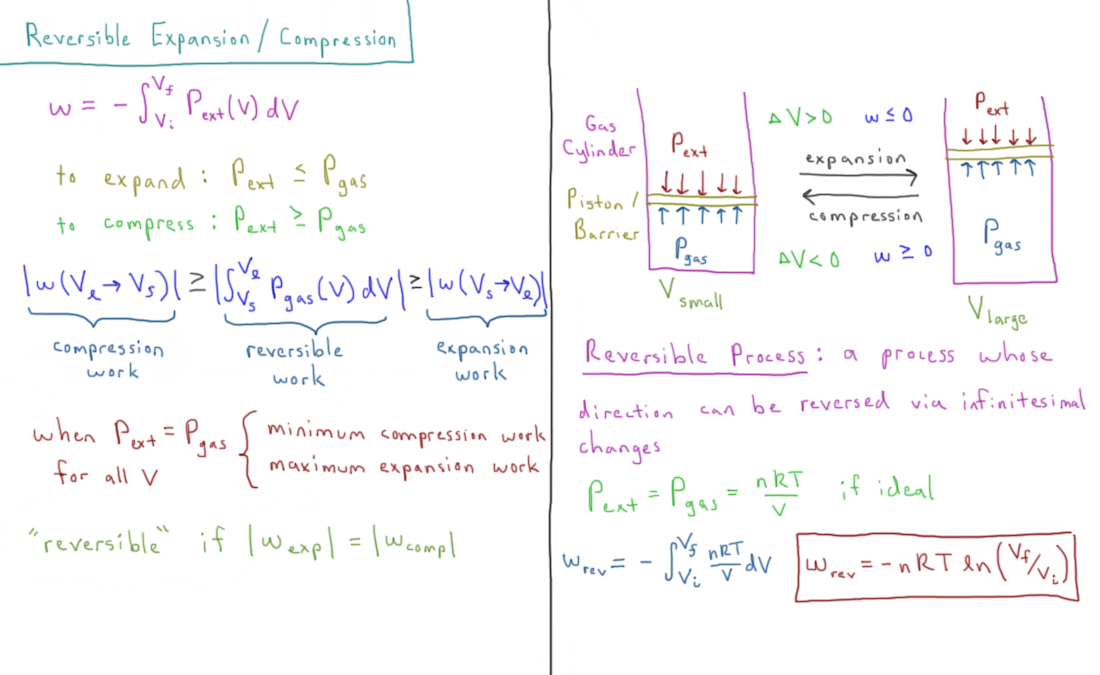 Reversible Expansion / Compression
w = - ∫_{V_i}^{V_f} P_ext(V) dV
to expand : P_ext ≤ P_gas
to compress : P_ext ≥ P_gas
|w(V_ℓ → V_s)| ≥ |∫_{V_s}^{V_ℓ} P_gas(V) dV| ≥ |w(V_s → V_ℓ)|
compression work
reversible work
expansion work
when P_ext = P_gas for all V
minimum compression work
maximum expansion work
"reversible" if |w_exp| = |w_comp|
Gas Cylinder
Piston / Barrier
P_ext
P_gas
V_small
ΔV > 0 w ≤ 0
expansion
compression
ΔV < 0 w ≥ 0
P_ext
P_gas
V_large
Reversible Process : a process whose
direction can be reversed via infinitesimal
changes
P_ext = P_gas = nRT/V if ideal
w_rev = - ∫_{V_i}^{V_f} nRT/V dV
w_rev = - nRT ln(V_f/V_i)